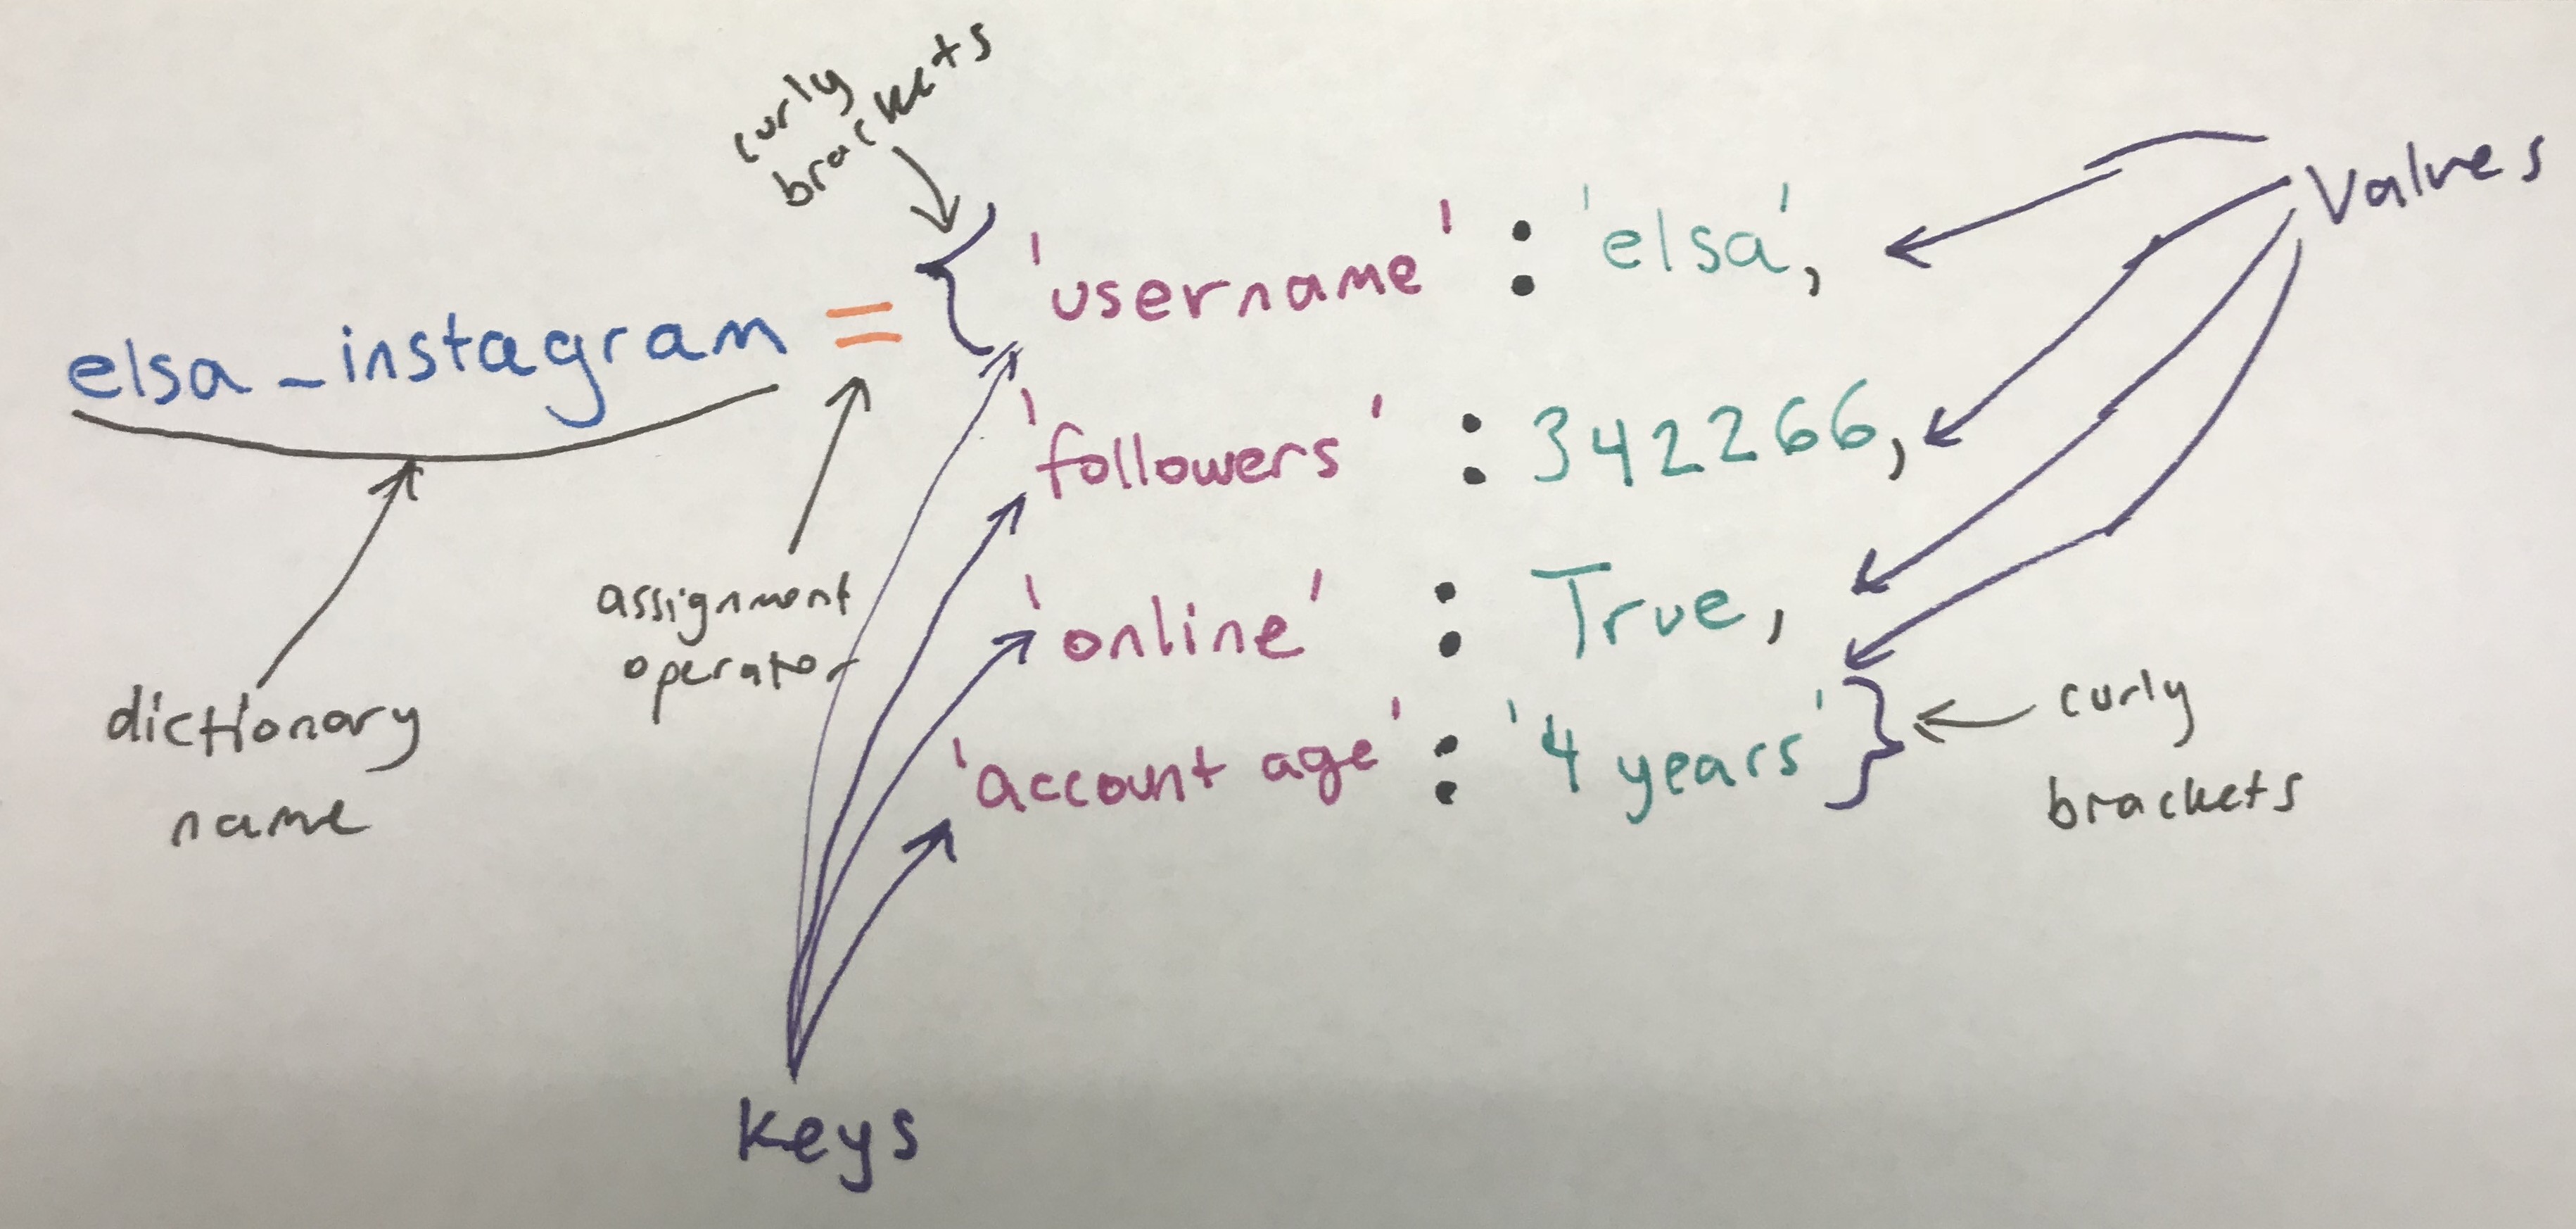 curly
brackets
Values
elsa_instagram = { 'username' : 'elsa',
'followers' : 342266,
'online' : True,
'account age' : '4 years' }
assignment
operator
dictionary
name
curly
brackets
keys